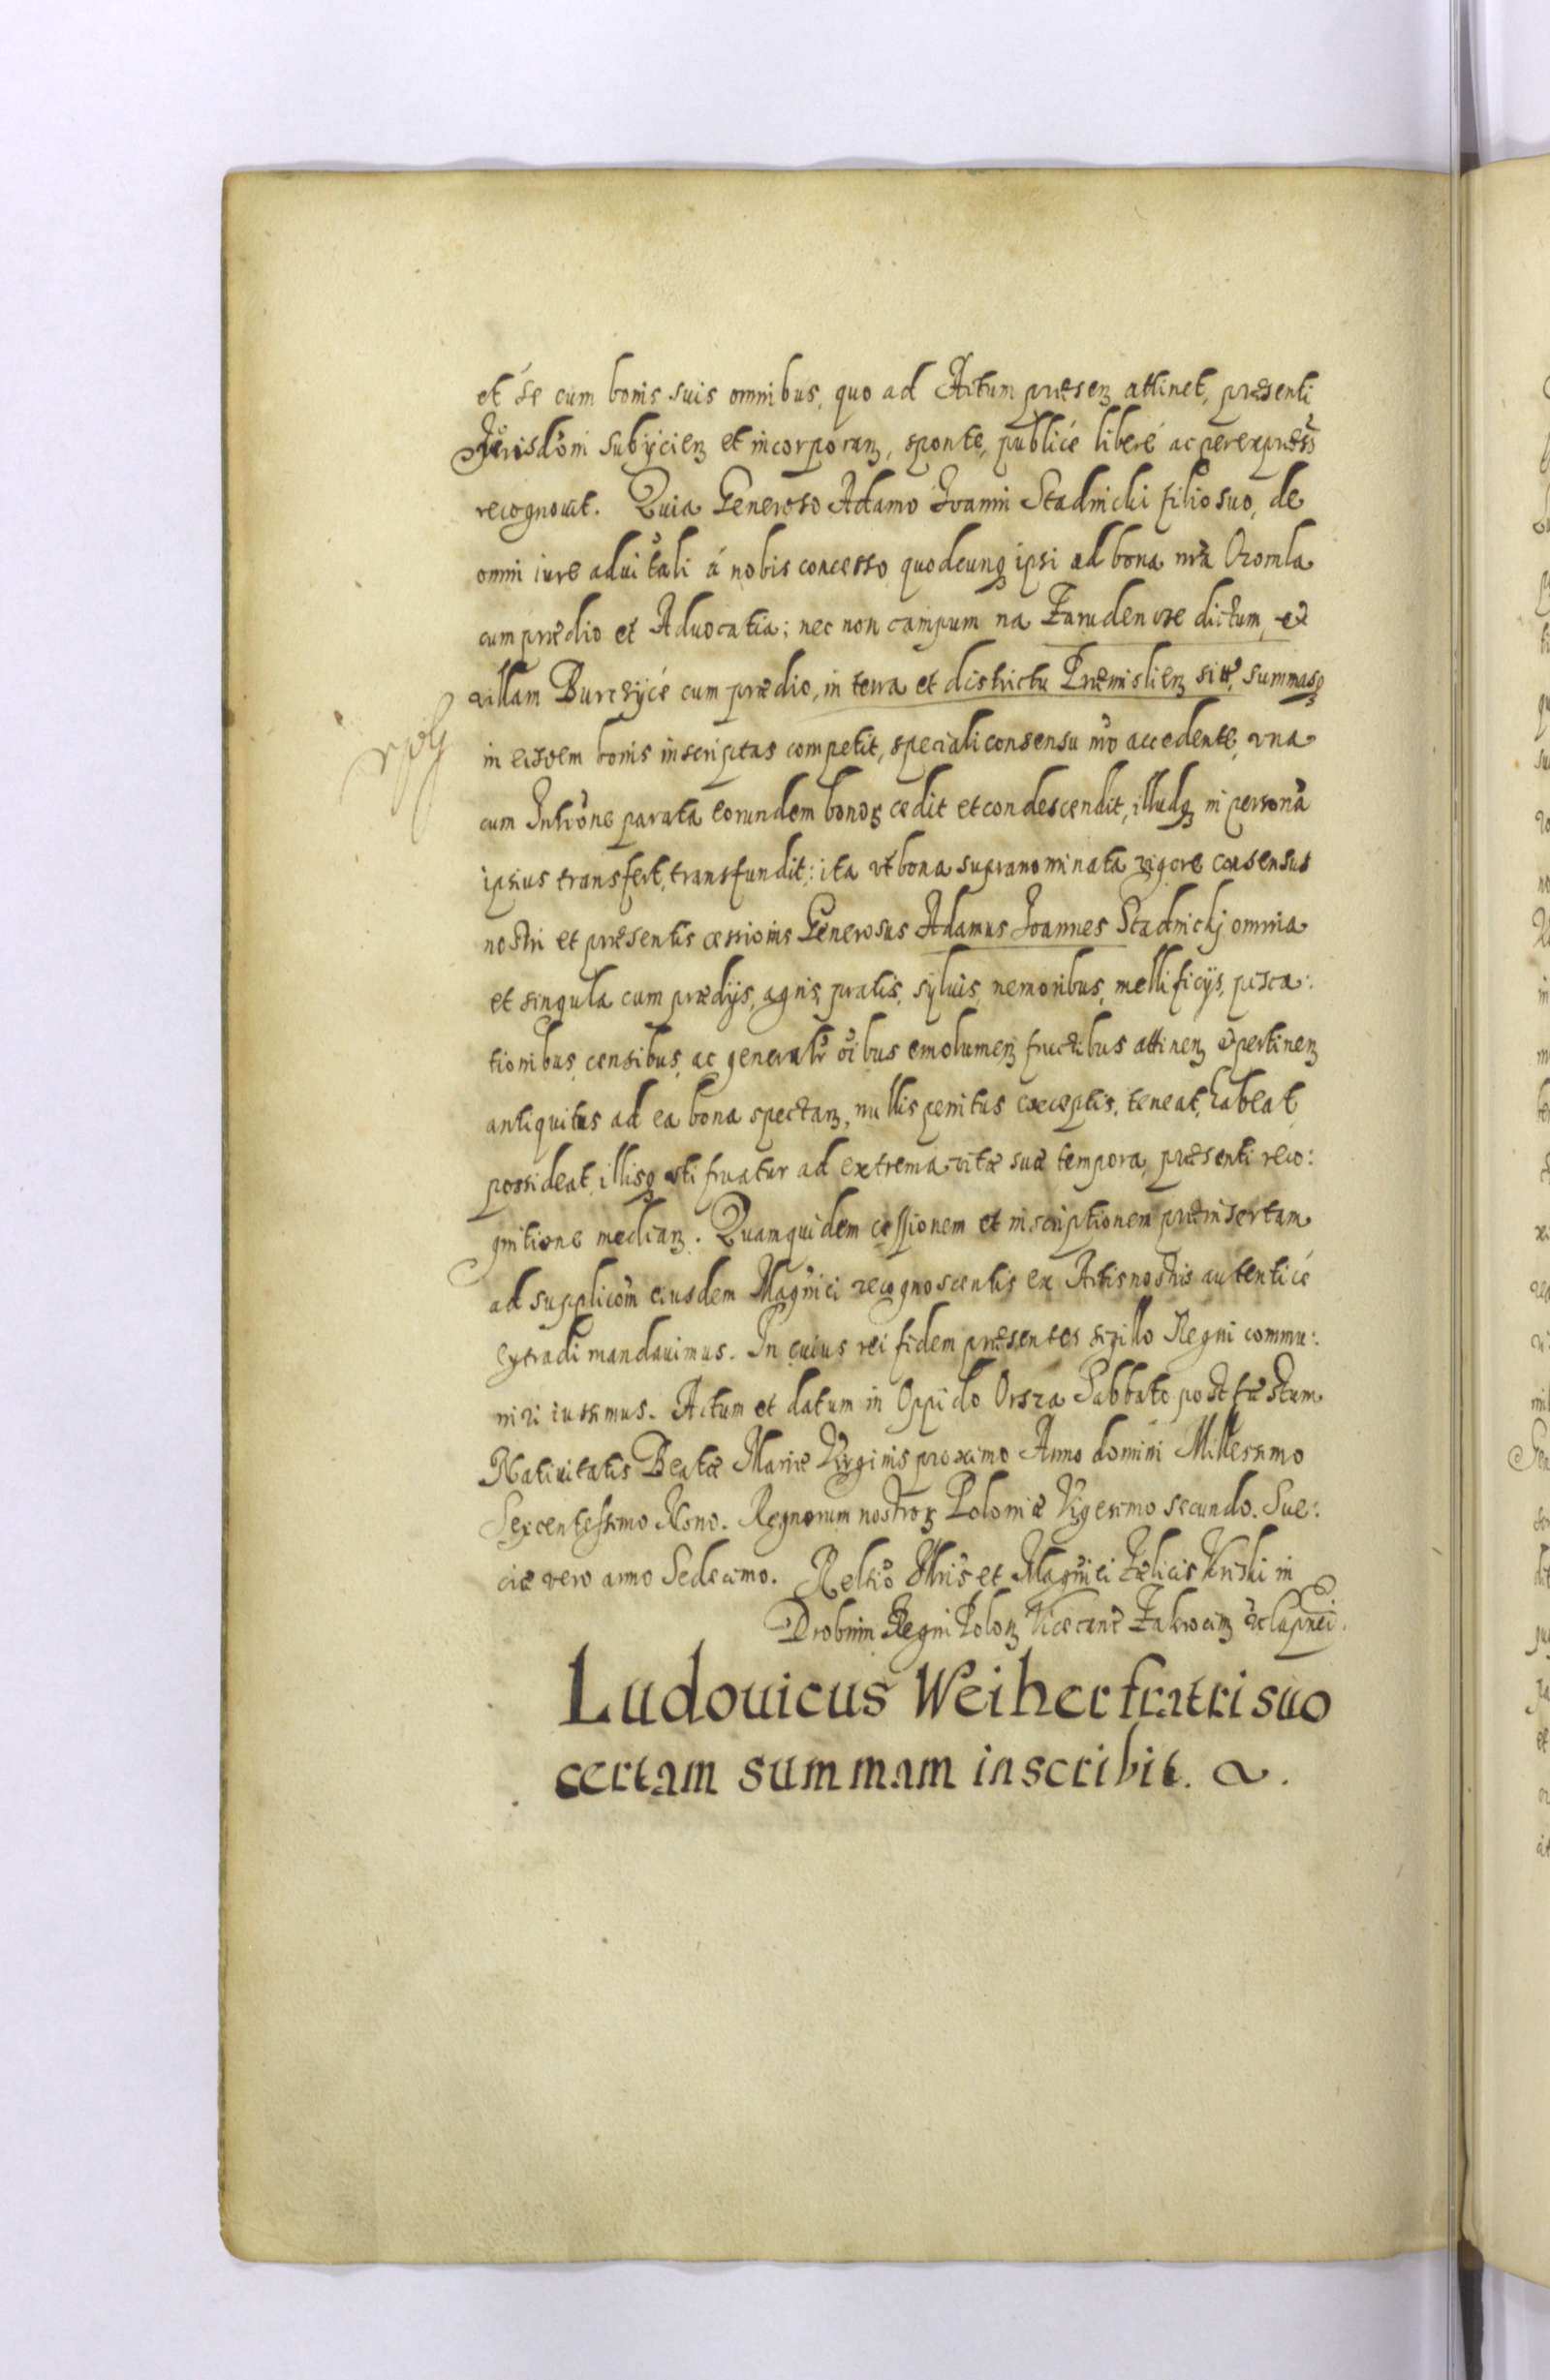 et se cum bonis suis omnibus, quo ad Actum præsenꝫ attinet, præsenti
Jurisdoni subijcienꝫ et incorporanꝫ, sponte, publicé liberé ac per expressũ
recognouit. Quia Generoso Adamo Joanni Stadnicki filio suo, de
omni iure aduitali á nobis concesso quodcunqꝫ ipsi ad bona nr̃a Ozomla
cum prædio et Aduocatia; nec non campum na Zarudencze dictum, et
villam Burczycé cum prædio, in terra et districtu Præmislienꝫ sitt, summasqꝫ
in eisdem bonis inscriptas competit, speciali consensu nr̃o accedente, vna
cum Intr̃one parata eorundem bonoꝝ cedit et condescendit, illudqꝫ in personã
ipsius transfert, transfundit: ita vt bona supranominata vigore consensus
nostri et præsentis cessionis Generosus Adamus Joannes Stadnickj omnia
et singula cum prædijs, agris, pratis, syluis, nemoribus, mellificijs, pisca:
tionibus, censibus, ac generalr̃ oĩbus emolumenꝫ fructibus attinenꝫ et pertinenꝫ
antiquitus ad ea bona spectanꝫ, nullis penitus exceptis, teneat, habeat,
possideat, illisqꝫ vti fruatur ad extrema vitæ suæ tempora, præsenti reco:
gnitione medianꝫ. Quamquidem cessionem et inscriptionem præinsertam
ad supplicõm eiusdem Magñici recognoscentis ex Actis nostris autenticé
extradi mandauimus. In cuius rei fidem præsentes sigillo Regni commu:
niri iussimus. Actum et datum in Oppido Orsza Sabbato post fæstum
Natiuitatis Beatæ Mariæ Virginis proximo Anno domini Millesimo
Sexcentessimo Nono. Regnorum nostroꝝ Poloniæ Vigesimo secundo. Sue:
ciæ vero anno Sedecimo. Reltiõ Illris et Magñici Fælicis Kriski in
Drobnin Regni Polonꝫ Vicecanc̃ Zakrocimꝫ
Ludouicus Weiher fratri suo
certam summam inscribit.